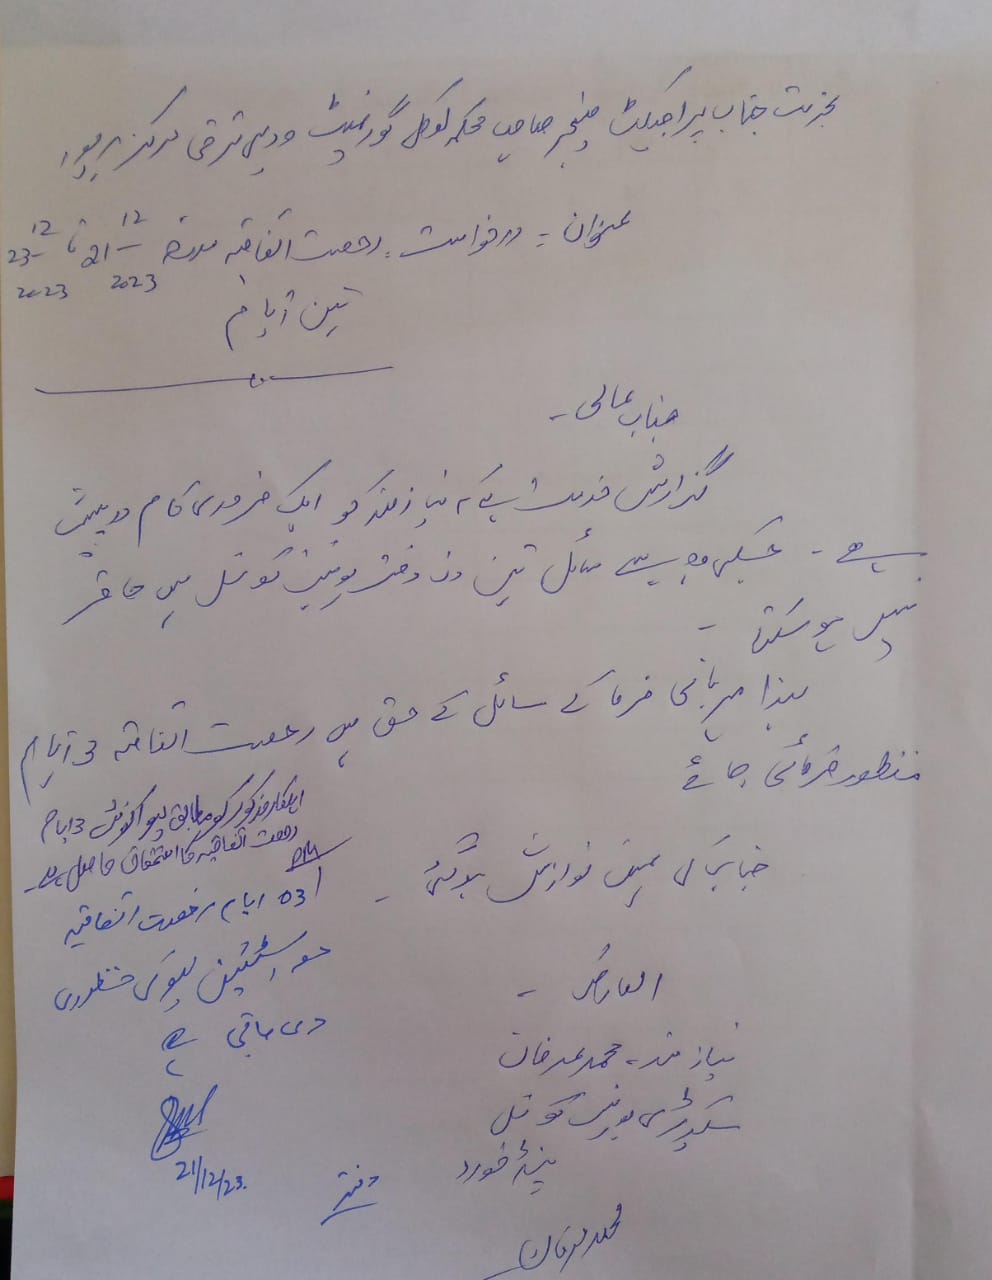 بخدمت جناب پراجیکٹ منیجر صاحب محکمہ لوکل گورنمنٹ و دیہی ترقی مرکز
عنوان ۔ درخواست رخصت اتفاقیہ مورخہ 21-12-2023 تا 23-12-2023
تین ایام
جناب عالی ۔
گزارش خدمت ہے کہ نیازمند کو ایک ضروری کام درپیش
ہے ۔ جسکی وجہ سے سائل تین دن دفتر یونین کونسل میں حاضر
نہیں ہو سکتا ۔
لہذا مہربانی فرما کے سائل کے حق میں رخصت اتفاقیہ 3 ایام
منظور فرمائی جائے
جناب کی عین نوازش ہوگی ۔
العارض ۔
نیاز مند ۔ محمد
سیکرٹری یونین کونسل
خورد
محمد
اہلکار مذکور کو مطابق لیو اکاونٹ 3 ایام
رخصت اتفاقیہ کا استحقاق حاصل ہے ۔
03 ایام رخصت اتفاقیہ
معہ اسٹیشن لیو کی منظوری
دی جاتی ہے
21/12/23.
دفتر